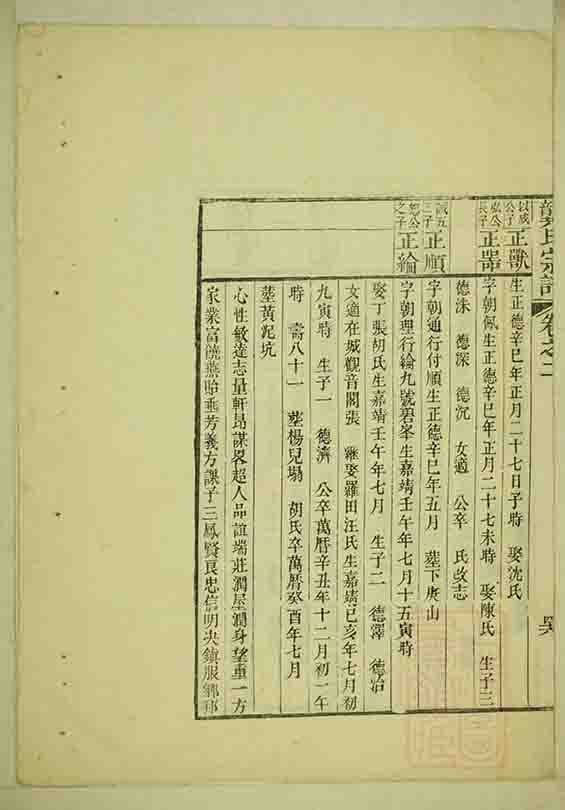 龔氏宗譜 卷之二
以成公子 正獸 生正德辛巳年正月二十七日子時 娶沈氏
弘公長子 正器 字朝佩生正德辛巳年正月二十七未時 娶陳氏 生子三
德洙 德深 德沉 女適 公卒 氏改志
三子 正順 字朝通行付順生正德辛巳年五月 塟下庚山
公之子 正綸 字朝理行綸九號碧峯生嘉靖壬午年七月十五寅時
娶丁張胡氏生嘉靖壬午年七月 生子二 德澤 德治
女適在城觀音閣張 繼娶羅田汪氏生嘉靖己亥年七月初
九寅時 生子一 德濟 公卒萬曆辛丑年十二月初一午
時 壽八十一 塟楊兒塌 胡氏卒萬曆癸酉年七月
塟黃泥坑
心性敏達志量軒昂謀畧超人品誼端莊潤屋潤身望重一方
家業富饒燕貽垂芳義方課子三鳳賢良忠信明决鎮服鄉邦